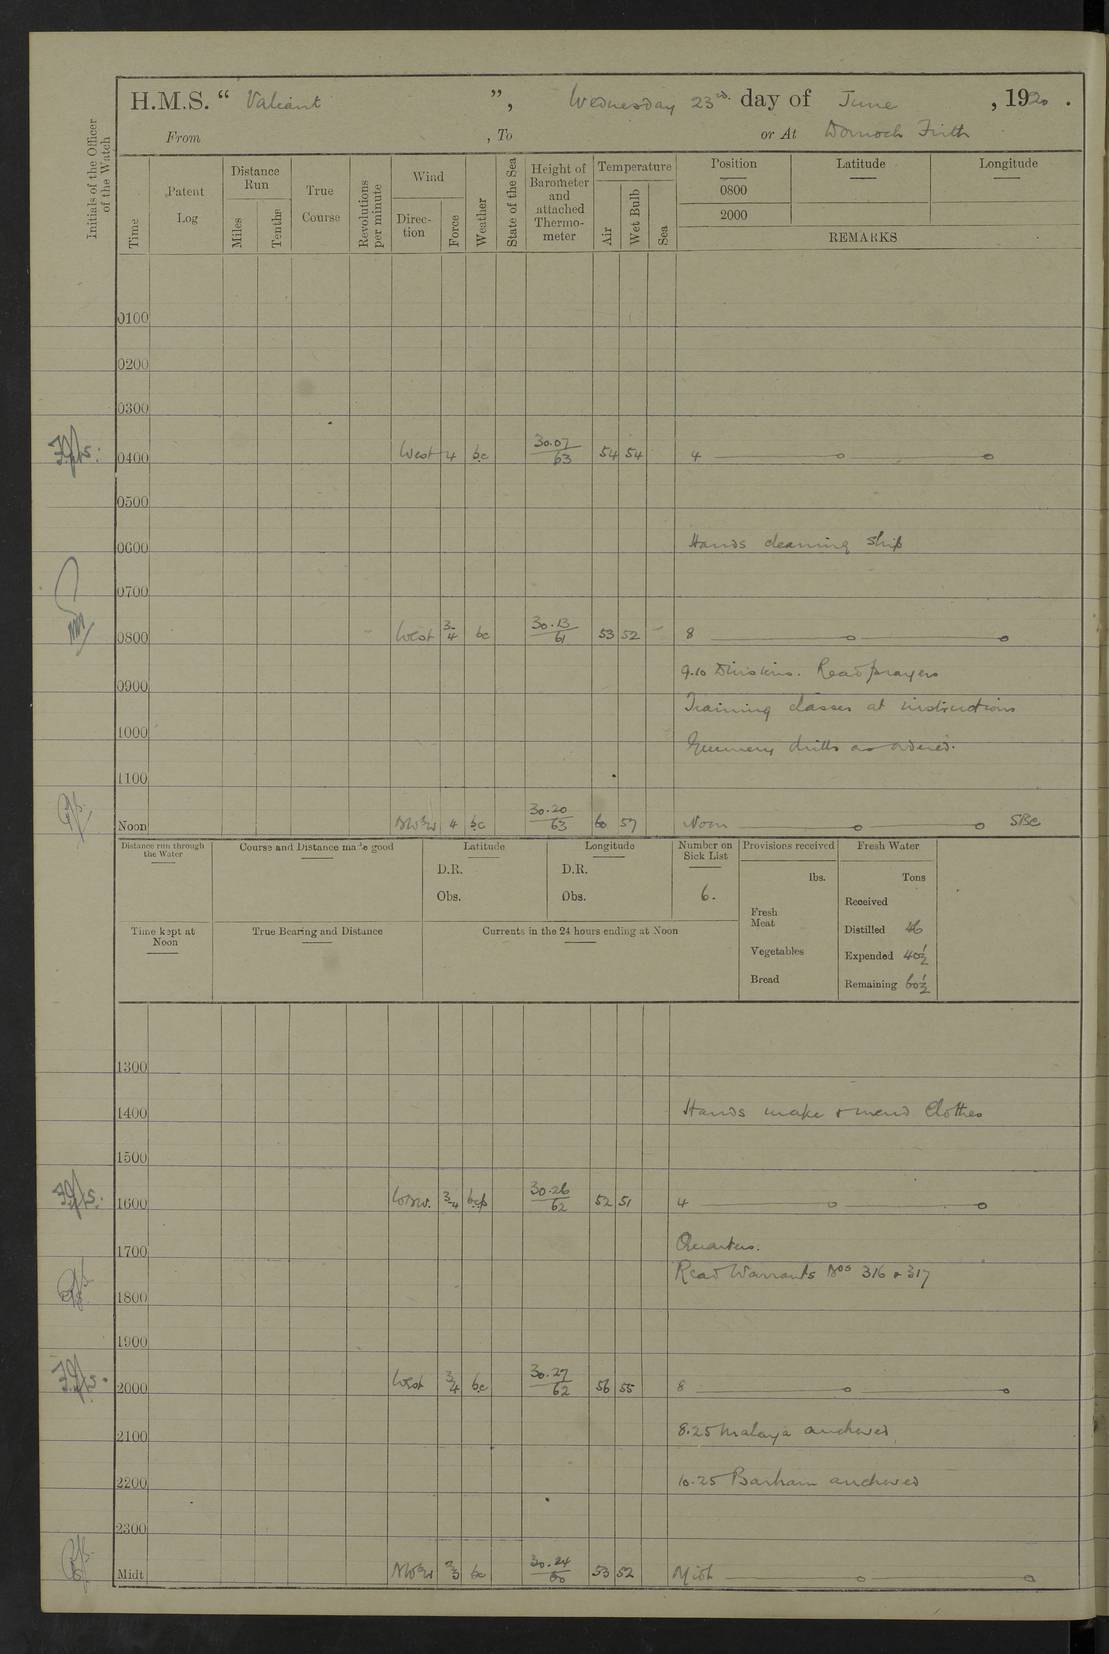 H.M.S. “ Valiant ”, Wednesday 23rd. day of June , 1920 .
From , To or At Dornoch Firth
Initials of the Officer
of the Watch
Time
Patent
Log
Distance
Run
Miles
Tenths
True
Course
Revolutions
per minute
Wind
Direc-
tion
Force
Weather
State of the Sea
Height of
Barometer
and
attached
Thermo-
meter
Temperature
Air
Wet Bulb
Sea
Position Latitude Longitude
0800
2000
REMARKS
0100
0200
0300
0400 West 4 bc 30.07/63 54 54 4
0500
0600 Hands cleaning ship
0700
0800 West 3-4 bc 30.13/61 53 52 8
9.10 Divisions. Read prayers
0900
Training classes at instructions
1000 Gunnery drills as ordered.
1100
Noon NWbW 4 bc 30.20/63 60 57 Noon SBC
Distance run through
the Water
Course and Distance made good
Latitude
D.R.
Obs.
Longitude
D.R.
Obs.
Number on
Sick List
6.
Provisions received
lbs.
Fresh
Meat
Vegetables
Bread
Fresh Water
Tons
Received
Distilled 46
Expended 40½
Remaining 60½
Time kept at
Noon
True Bearing and Distance
Currents in the 24 hours ending at Noon
1300
1400 Hands make & mend Clothes
1500
1600 WNW. 3-4 bcp 30.26/62 52 51 4
1700 Quarters.
Read Warrants Nos 316 & 317
1800
1900
2000 West 3/4 bc 30.27/62 56 55 8
2100 8.25 Malaya anchored
2200 10.25 Barham anchored
2300
Midt NWbW 2/3 bc 30.24/60 53 52 Midt